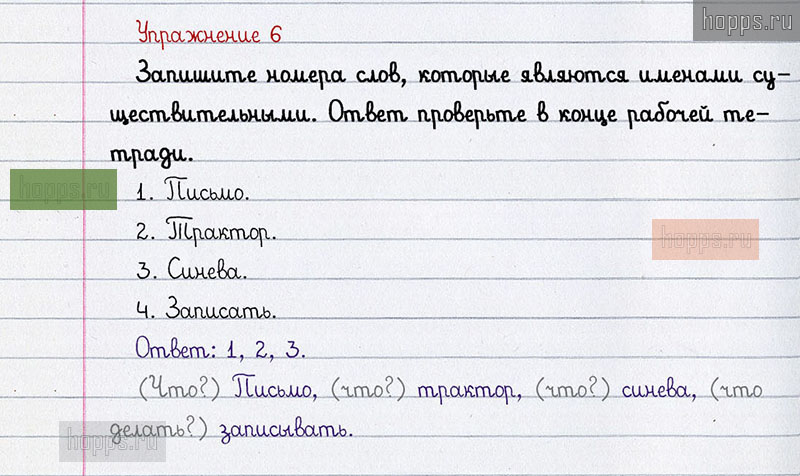 hopps.ru
Упражнение 6
Запишите номера слов, которые являются именами су-
ществительными. Ответ проверьте в конце рабочей те-
тради.
hopps.ru
1. Письмо.
2. Трактор.
hopps.ru
3. Синева.
4. Записать.
Ответ: 1, 2, 3.
(Что?) Письмо, (что?) трактор, (что?) синева, (что
делать?) записывать.
hopps.ru